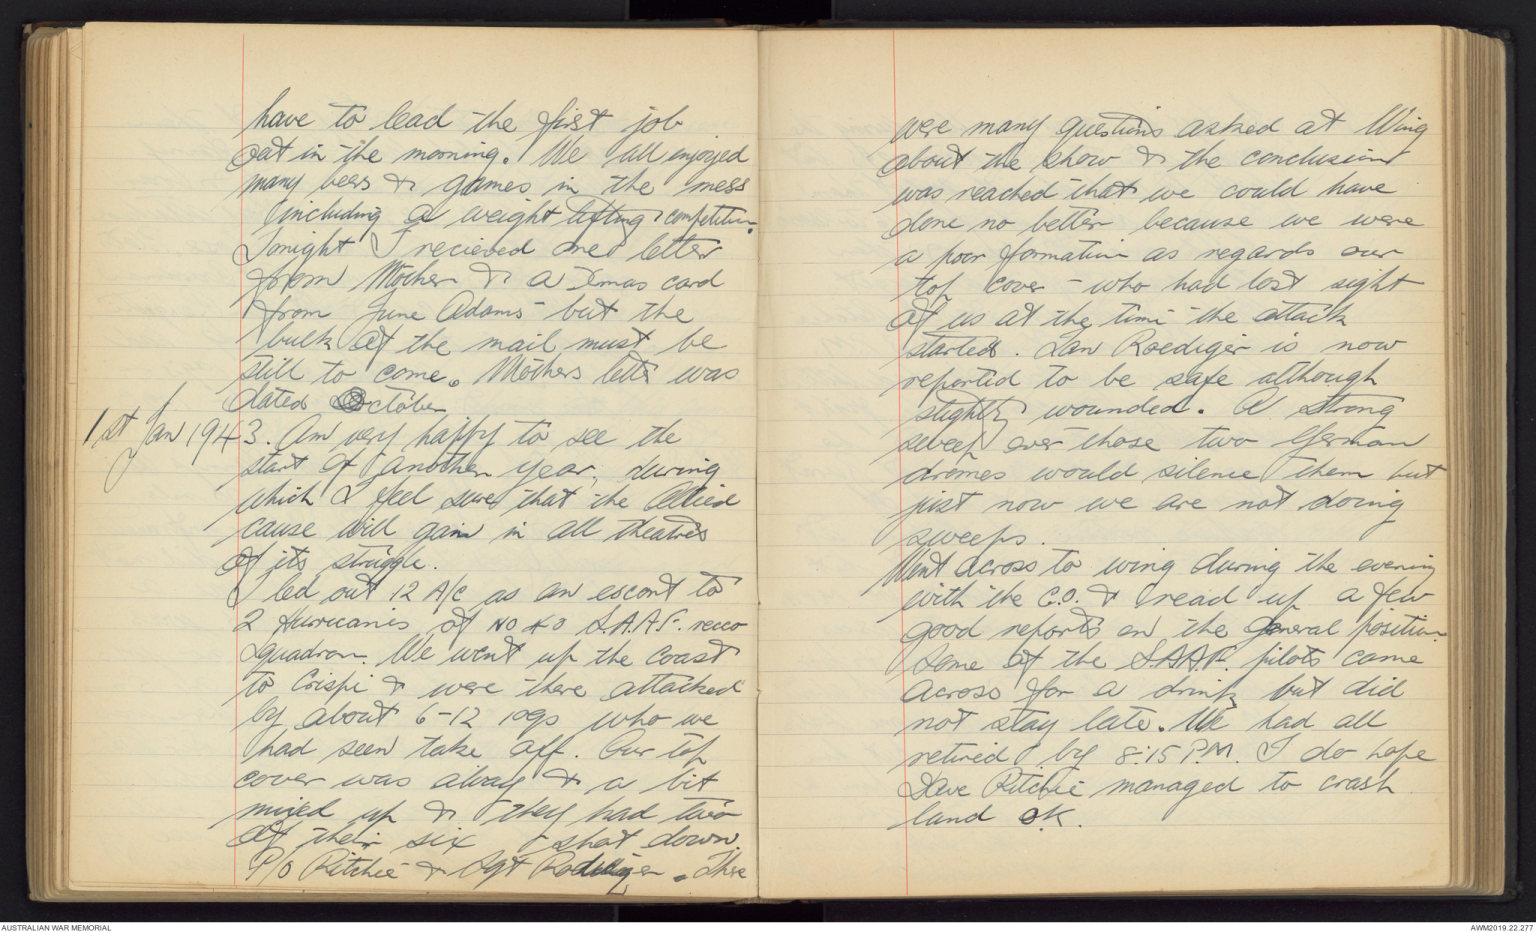 have to lead the first job
out in the morning. We all enjoyed
many beers & games in the mess
including a weight lifting competition.
Tonight I recieved one letter
from Mother & a Xmas card
from June Adams - but the
bulk of the mail must be
still to come. Mothers letter was
dated October
1st Jan 1943. Am very happy to see the
start of another year, during
which I feel sure that the Allied
cause will gain in all theatres
of its struggle.
I led out 12 A/C as an escort to
2 Hurricanes of No 40 S.A.A.F. recco
Squadron. We went up the coast
to Crispi & were there attacked
by about 6-12 109s who we
had seen take off. Our top
cover was away & a bit
mixed up & they had two
of their six shot down.
P/O Ritchie & Sgt Roediger. There
were many questions asked at Wing
about the show & the conclusion
was reached that we could have
done no better because we were
a poor formation as regards our
top cover - who had lost sight
of us at the time the attack
started. Ian Roediger is now
reported to be safe although
slightly wounded. A strong
sweep over those two German
dromes would silence them but
just now we are not doing
sweeps.
Went across to wing during the evening
with the C.O. & read up a few
good reports on the general position
Some of the SAAF. pilots came
across for a drink but did
not stay late. We had all
retired by 8:15 P.M. I do hope
Dave Ritchie managed to crash
land OK.
AUSTRALIAN WAR MEMORIAL
AWM2019.22.277